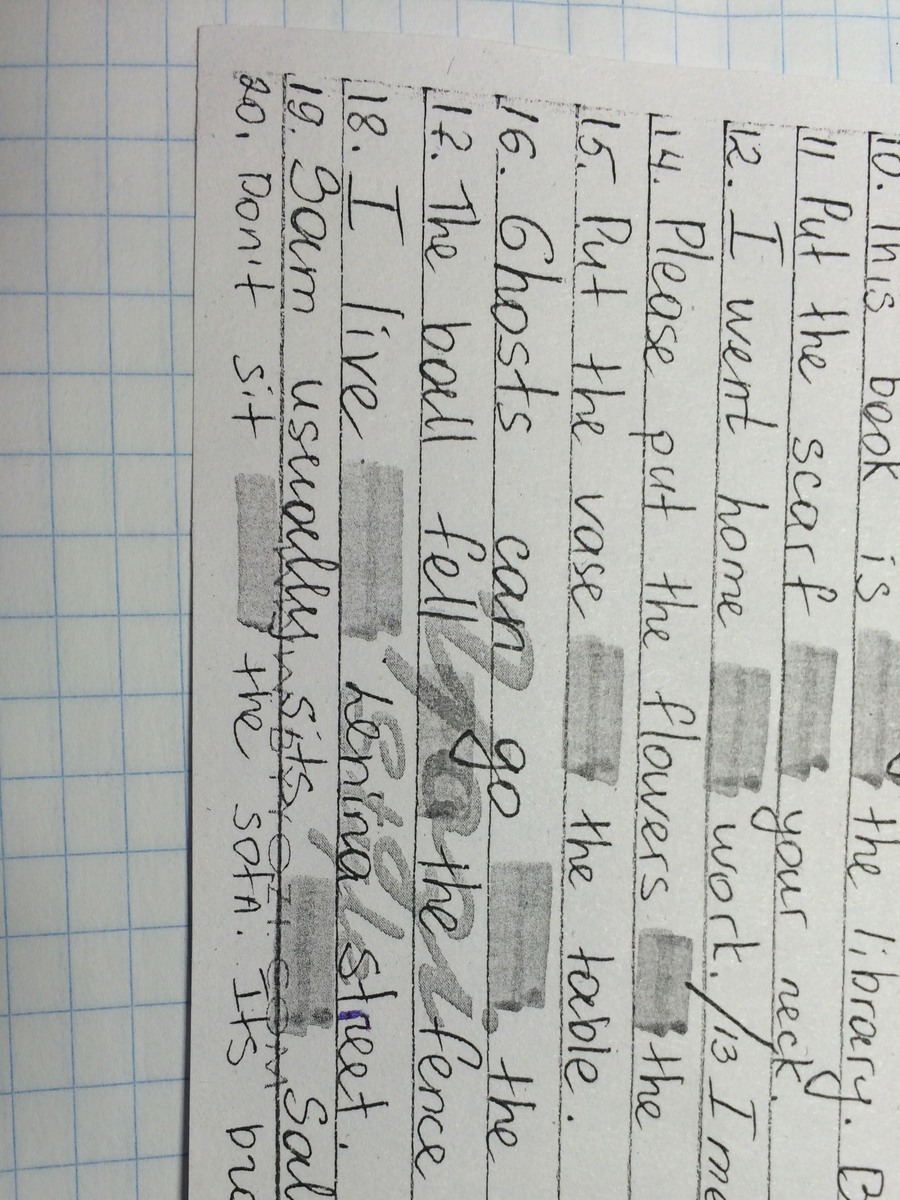 10. This book is the library.
11 Put the scarf your neck.
12. I went home work. /13 I
14. Please put the flowers the
15. Put the vase the table.
16. Ghosts can go the
17. The ball fell the fence
18. I live Lenina street.
19. Sam usually sits
20. Don't sit the sofa. Its